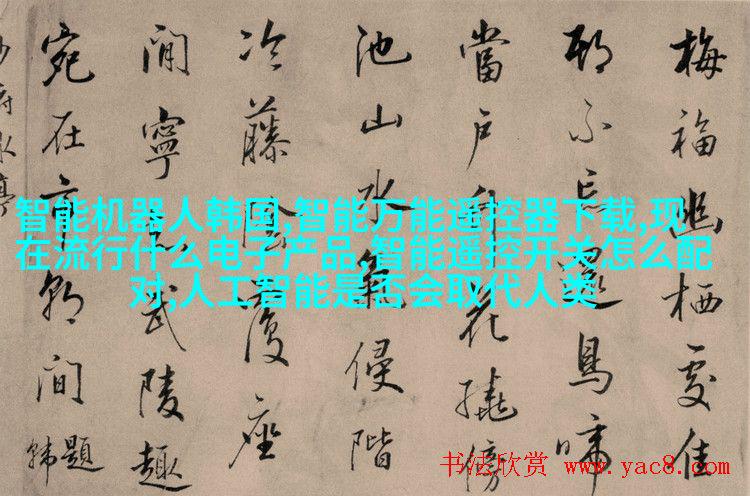 梅福幽栖處佳
期不忘還鳥啼
當戶竹花繞傍
池山水氣侵階
冷藤陰覆座
閒寧知武陵趣
宛在市朝間
題
智能机器人韩国,智能万能遥控器下载,现
在流行什么电子产品,智能遥控开关怎么配
对,人工智能是否会取代人类
书法欣赏 www.yac8.com